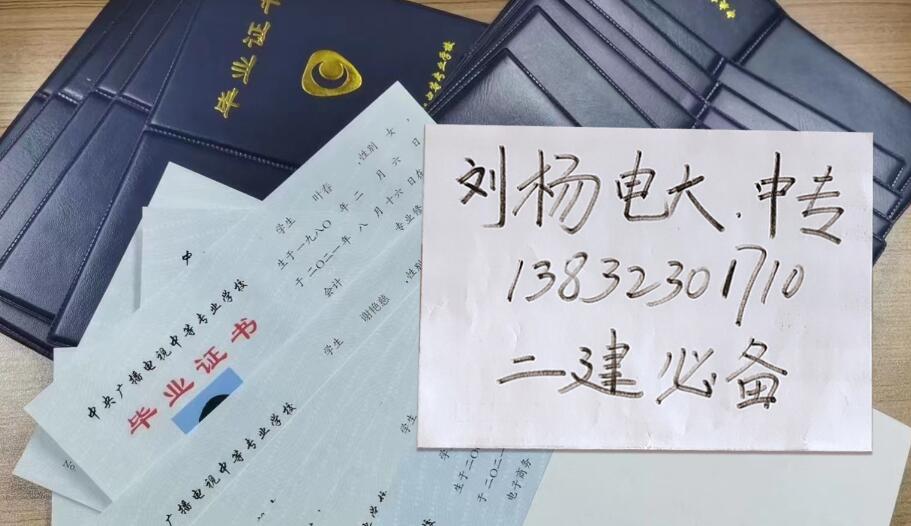 毕业证书
刘杨电大.中专
13832301710
二建必备
学生 叶春 ,性别 女,
生于一九八〇年 二 月 六 日
于二〇二一年 八 月十六日在
会计 专业修
中央广播电视中等专业学校
毕业证书
学生 谢艳慈 ,性别
广播电视中等专业学校
No
学生
生于二〇
于二〇二一
电子商务